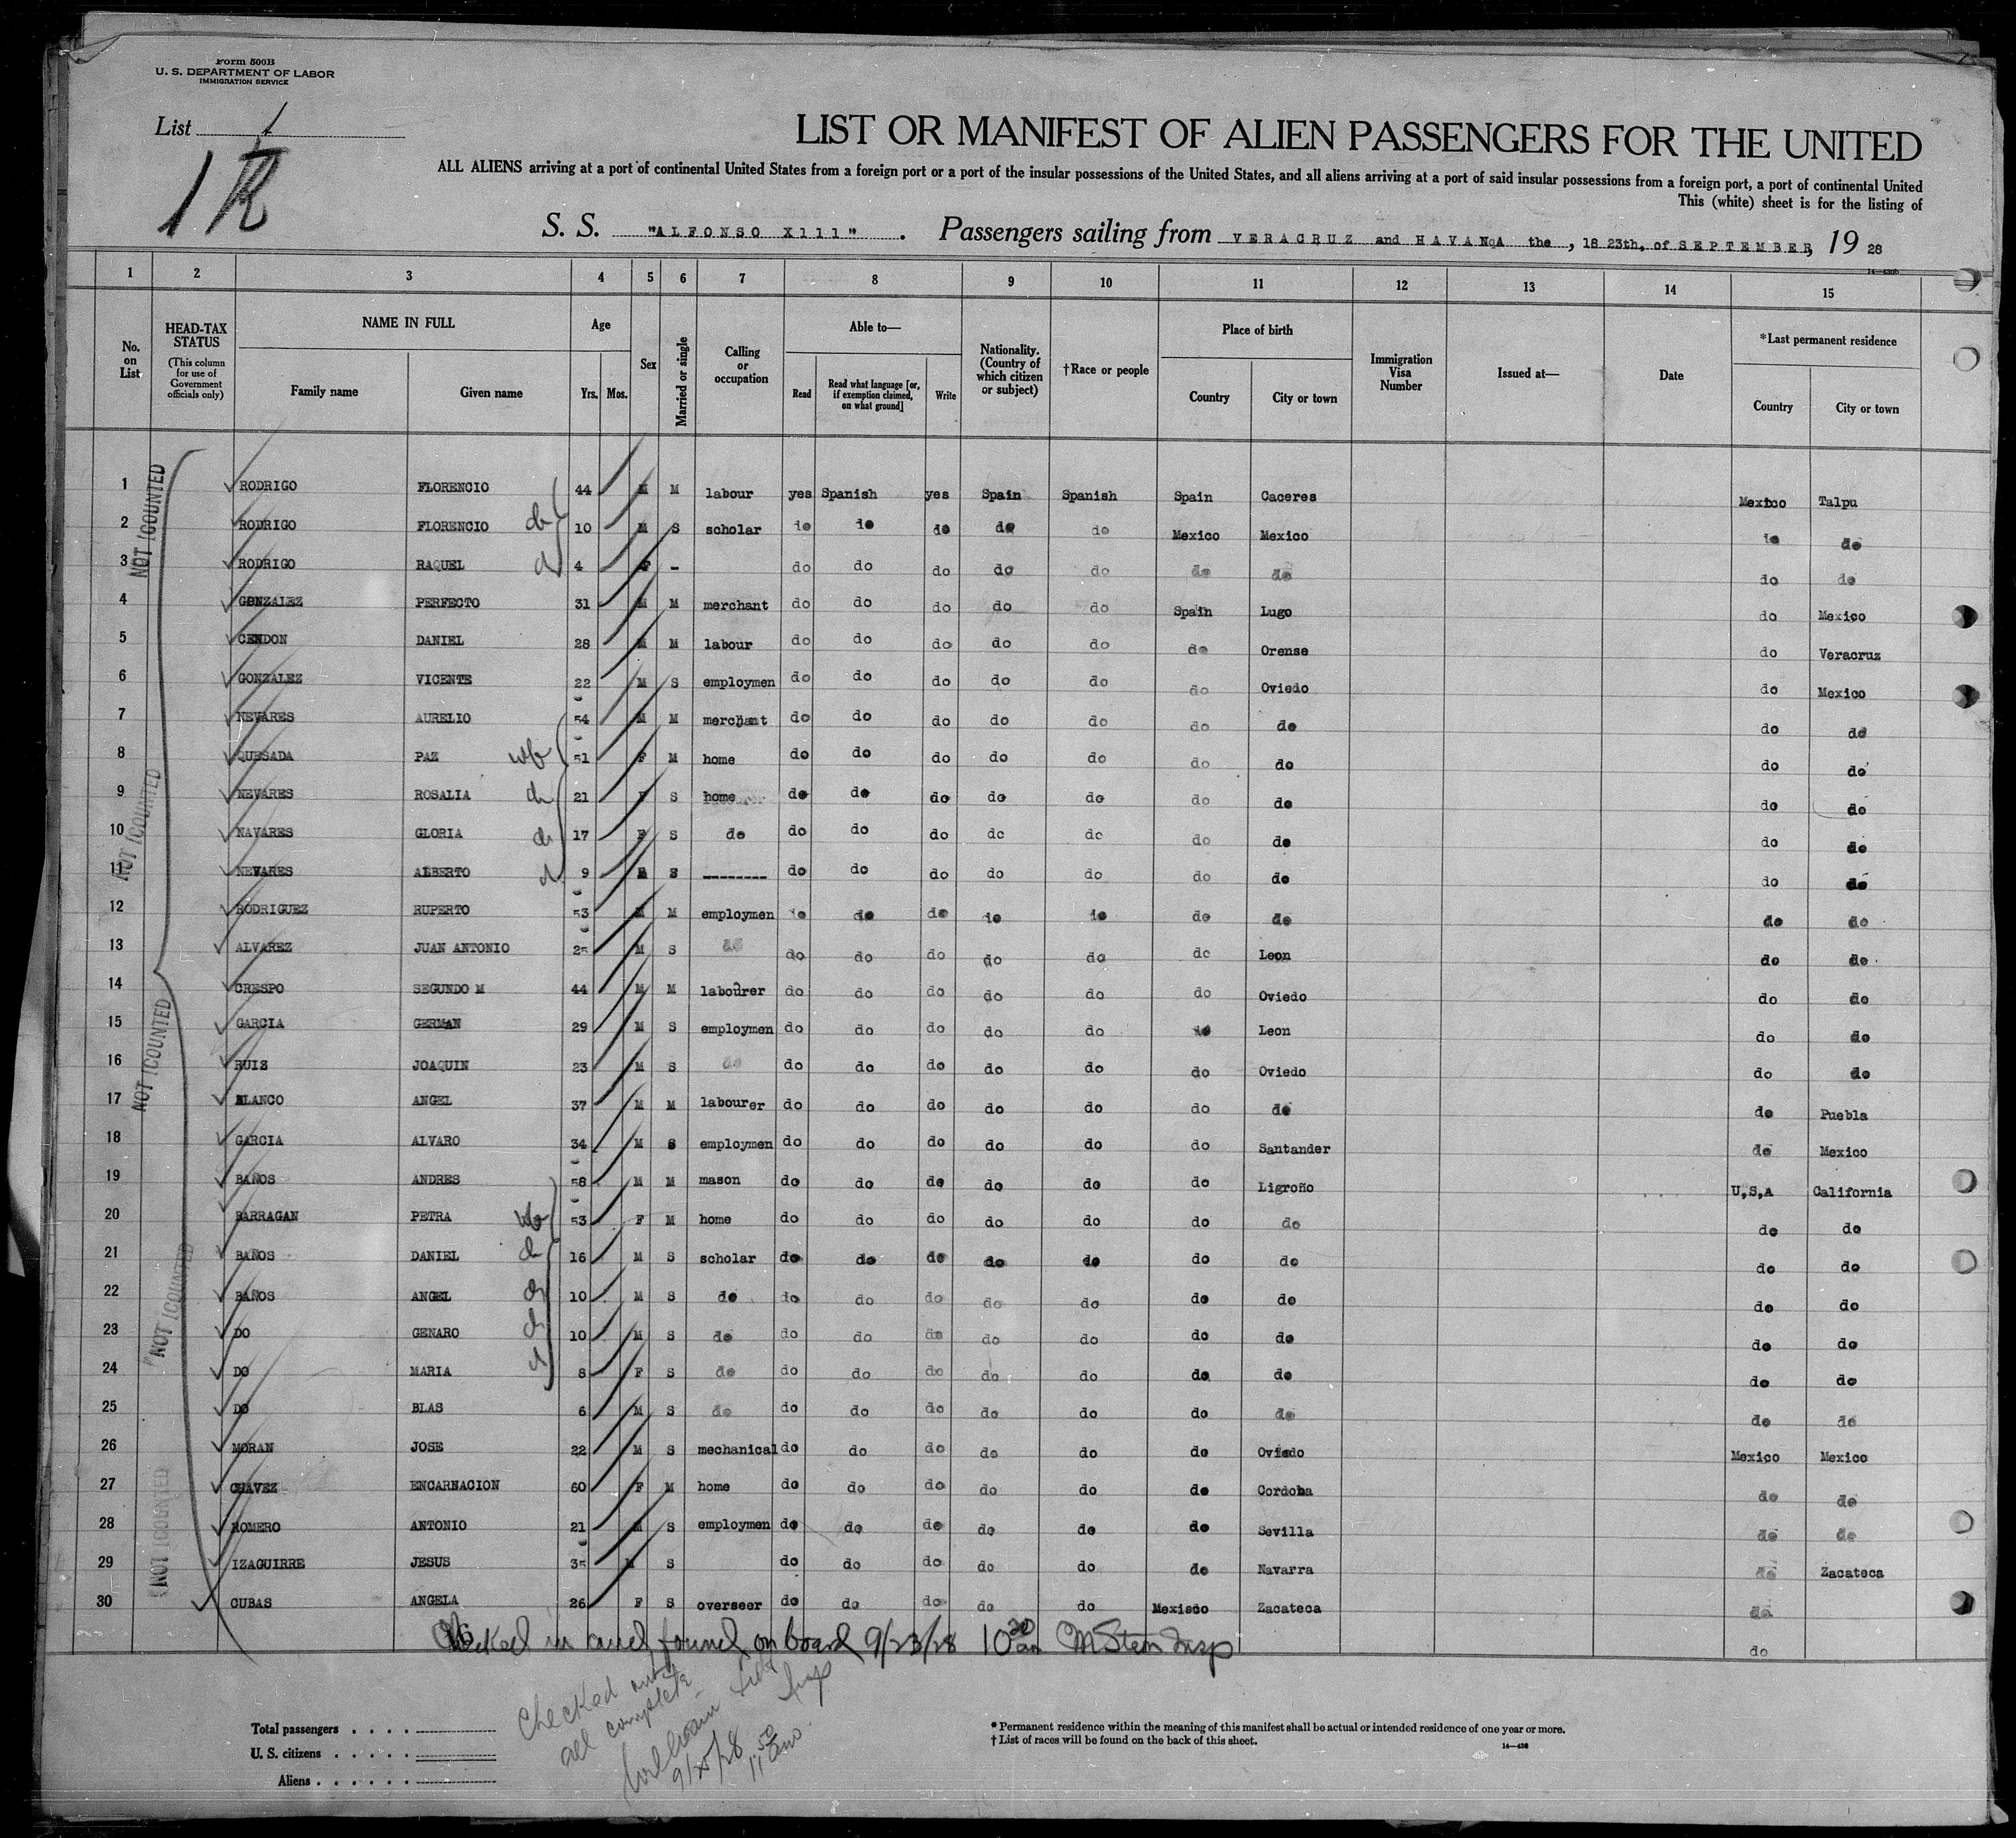 Form 500B
U. S. DEPARTMENT OF LABOR
IMMIGRATION SERVICE
List 1
1
LIST OR MANIFEST OF ALIEN PASSENGERS FOR THE UNITED
ALL ALIENS arriving at a port of continental United States from a foreign port or a port of the insular possessions of the United States, and all aliens arriving at a port of said insular possessions from a foreign port, a port of continental United
This (white) sheet is for the listing of
S. S. "ALFONSO X111". Passengers sailing from VERACRUZ and HAVANA the, 18 23th, of SEPTEMBER, 19 28
14—430b
1 2 3 4 5 6 7 8 9 10 11 12 13 14 15
No. on List HEAD-TAX STATUS (This column for use of Government officials only) NAME IN FULL Family name Given name Age Yrs. Mos. Sex Married or single Calling or occupation Able to— Read Read what language [or, if exemption claimed, on what ground] Write Nationality. (Country of which citizen or subject) †Race or people Place of birth Country City or town Immigration Visa Number Issued at— Date *Last permanent residence Country City or town
1 RODRIGO FLORENCIO 44 M M labour yes Spanish yes Spain Spanish Spain Caceres Mexico Talpu
2 RODRIGO FLORENCIO 10 M S scholar do do do do do Mexico Mexico do do
3 RODRIGO RAQUEL 4 F - do do do do do do do do do
4 GONZALEZ PERFECTO 31 M M merchant do do do do do Spain Lugo do Mexico
5 CENDON DANIEL 28 M M labour do do do do do do Orense do Veracruz
6 GONZALEZ VICENTE 22 M S employmen do do do do do do Oviedo do Mexico
7 NEVARES AURELIO 54 M M merchant do do do do do do do do do
8 QUESADA PAZ 51 F M home do do do do do do do do do
9 NEVARES ROSALIA 21 F S home do do do do do do do do do
10 NAVARES GLORIA 17 F S do do do do do do do do do do
11 NEVARES ALBERTO 9 S -------- do do do do do do do do do
12 RODRIGUEZ RUPERTO 53 M M employmen do do do do do do do do do
13 ALVAREZ JUAN ANTONIO 25 M S do do do do do do do Leon do do
14 CRESPO SEGUNDO M 44 M M labourer do do do do do do Oviedo do do
15 GARCIA GERMAN 29 M S employmen do do do do do do Leon do do
16 RUIZ JOAQUIN 23 M S do do do do do do do Oviedo do do
17 BLANCO ANGEL 37 M M labourer do do do do do do do do Puebla
18 GARCIA ALVARO 34 M S employmen do do do do do do Santander do Mexico
19 BAÑOS ANDRES 58 M M mason do do do do do do Ligroño U,S,A California
20 BARRAGAN PETRA 53 F M home do do do do do do do do do
21 BAÑOS DANIEL 16 M S scholar do do do do do do do do do
22 BAÑOS ANGEL 10 M S do do do do do do do do do do
23 DO GENARO 10 M S do do do do do do do do do do
24 DO MARIA 8 F S do do do do do do do do do do
25 DO BLAS 6 M S do do do do do do do do do do
26 MORAN JOSE 22 M S mechanical do do do do do do Oviedo Mexico Mexico
27 CHAVEZ ENCARNACION 60 F M home do do do do do do Cordoba do do
28 ROMERO ANTONIO 21 M S employmen do do do do do do Sevilla do do
29 IZAGUIRRE JESUS 35 M S do do do do do do Navarra do Zacateca
30 CUBAS ANGELA 26 F S overseer do do do do do Mexisco Zacateca do
do
NOT COUNTED
NOT COUNTED
NOT COUNTED
NOT COUNTED
NOT COUNTED
Checked in and found on board 9/23/28 10 30 am M Stern Insp
Checked out
all complete
Insp
9/25/28 11 50 am
Total passengers
U. S. citizens
Aliens
* Permanent residence within the meaning of this manifest shall be actual or intended residence of one year or more.
† List of races will be found on the back of this sheet.
14—430